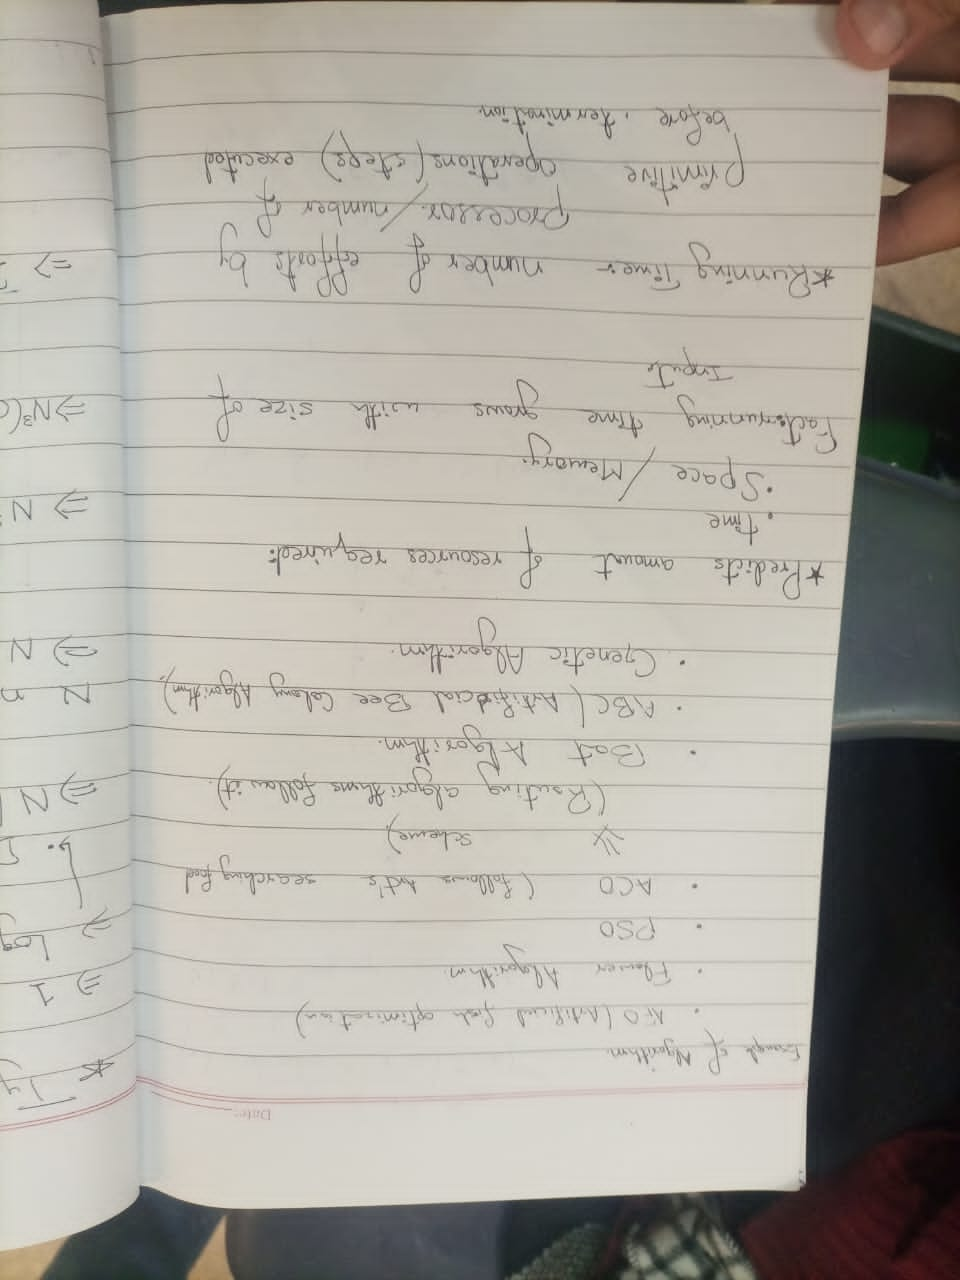 Date:
Example of Algorithm.
• AFO (Artificial fish optimization)
• Flower Algorithm.
• PSO
• ACO (follows Ant's searching food
scheme)
(Routing algorithms follow it).
• Bat Algorithm.
• ABC (Artificial Bee Colony Algorithm).
• Genetic Algorithm.
* Predicts amount of resources required:
• time
• Space / Memory:
Fact:- running time grows with size of
Input.
* Running Time:- number of efforts by
processor / number of
primitive operations (steps) executed
before termination.
* Ty
⇒ 1
⇒ Log
⇒ N
N n
⇒ N
⇒ N
⇒ N³ (
=>